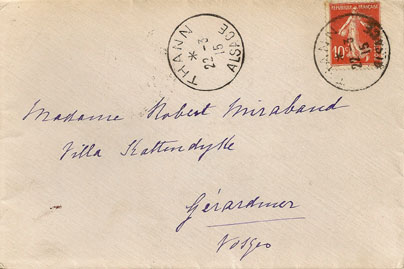 THANN
*
22 - 3
15
ALSACE
RÉPUBLIQUE FRANÇAISE
10c
THANN
*
22 - 3
15
ALSACE
Madame Robert Mirabaud
Villa Kattendyke
Gérardmer
Vosges